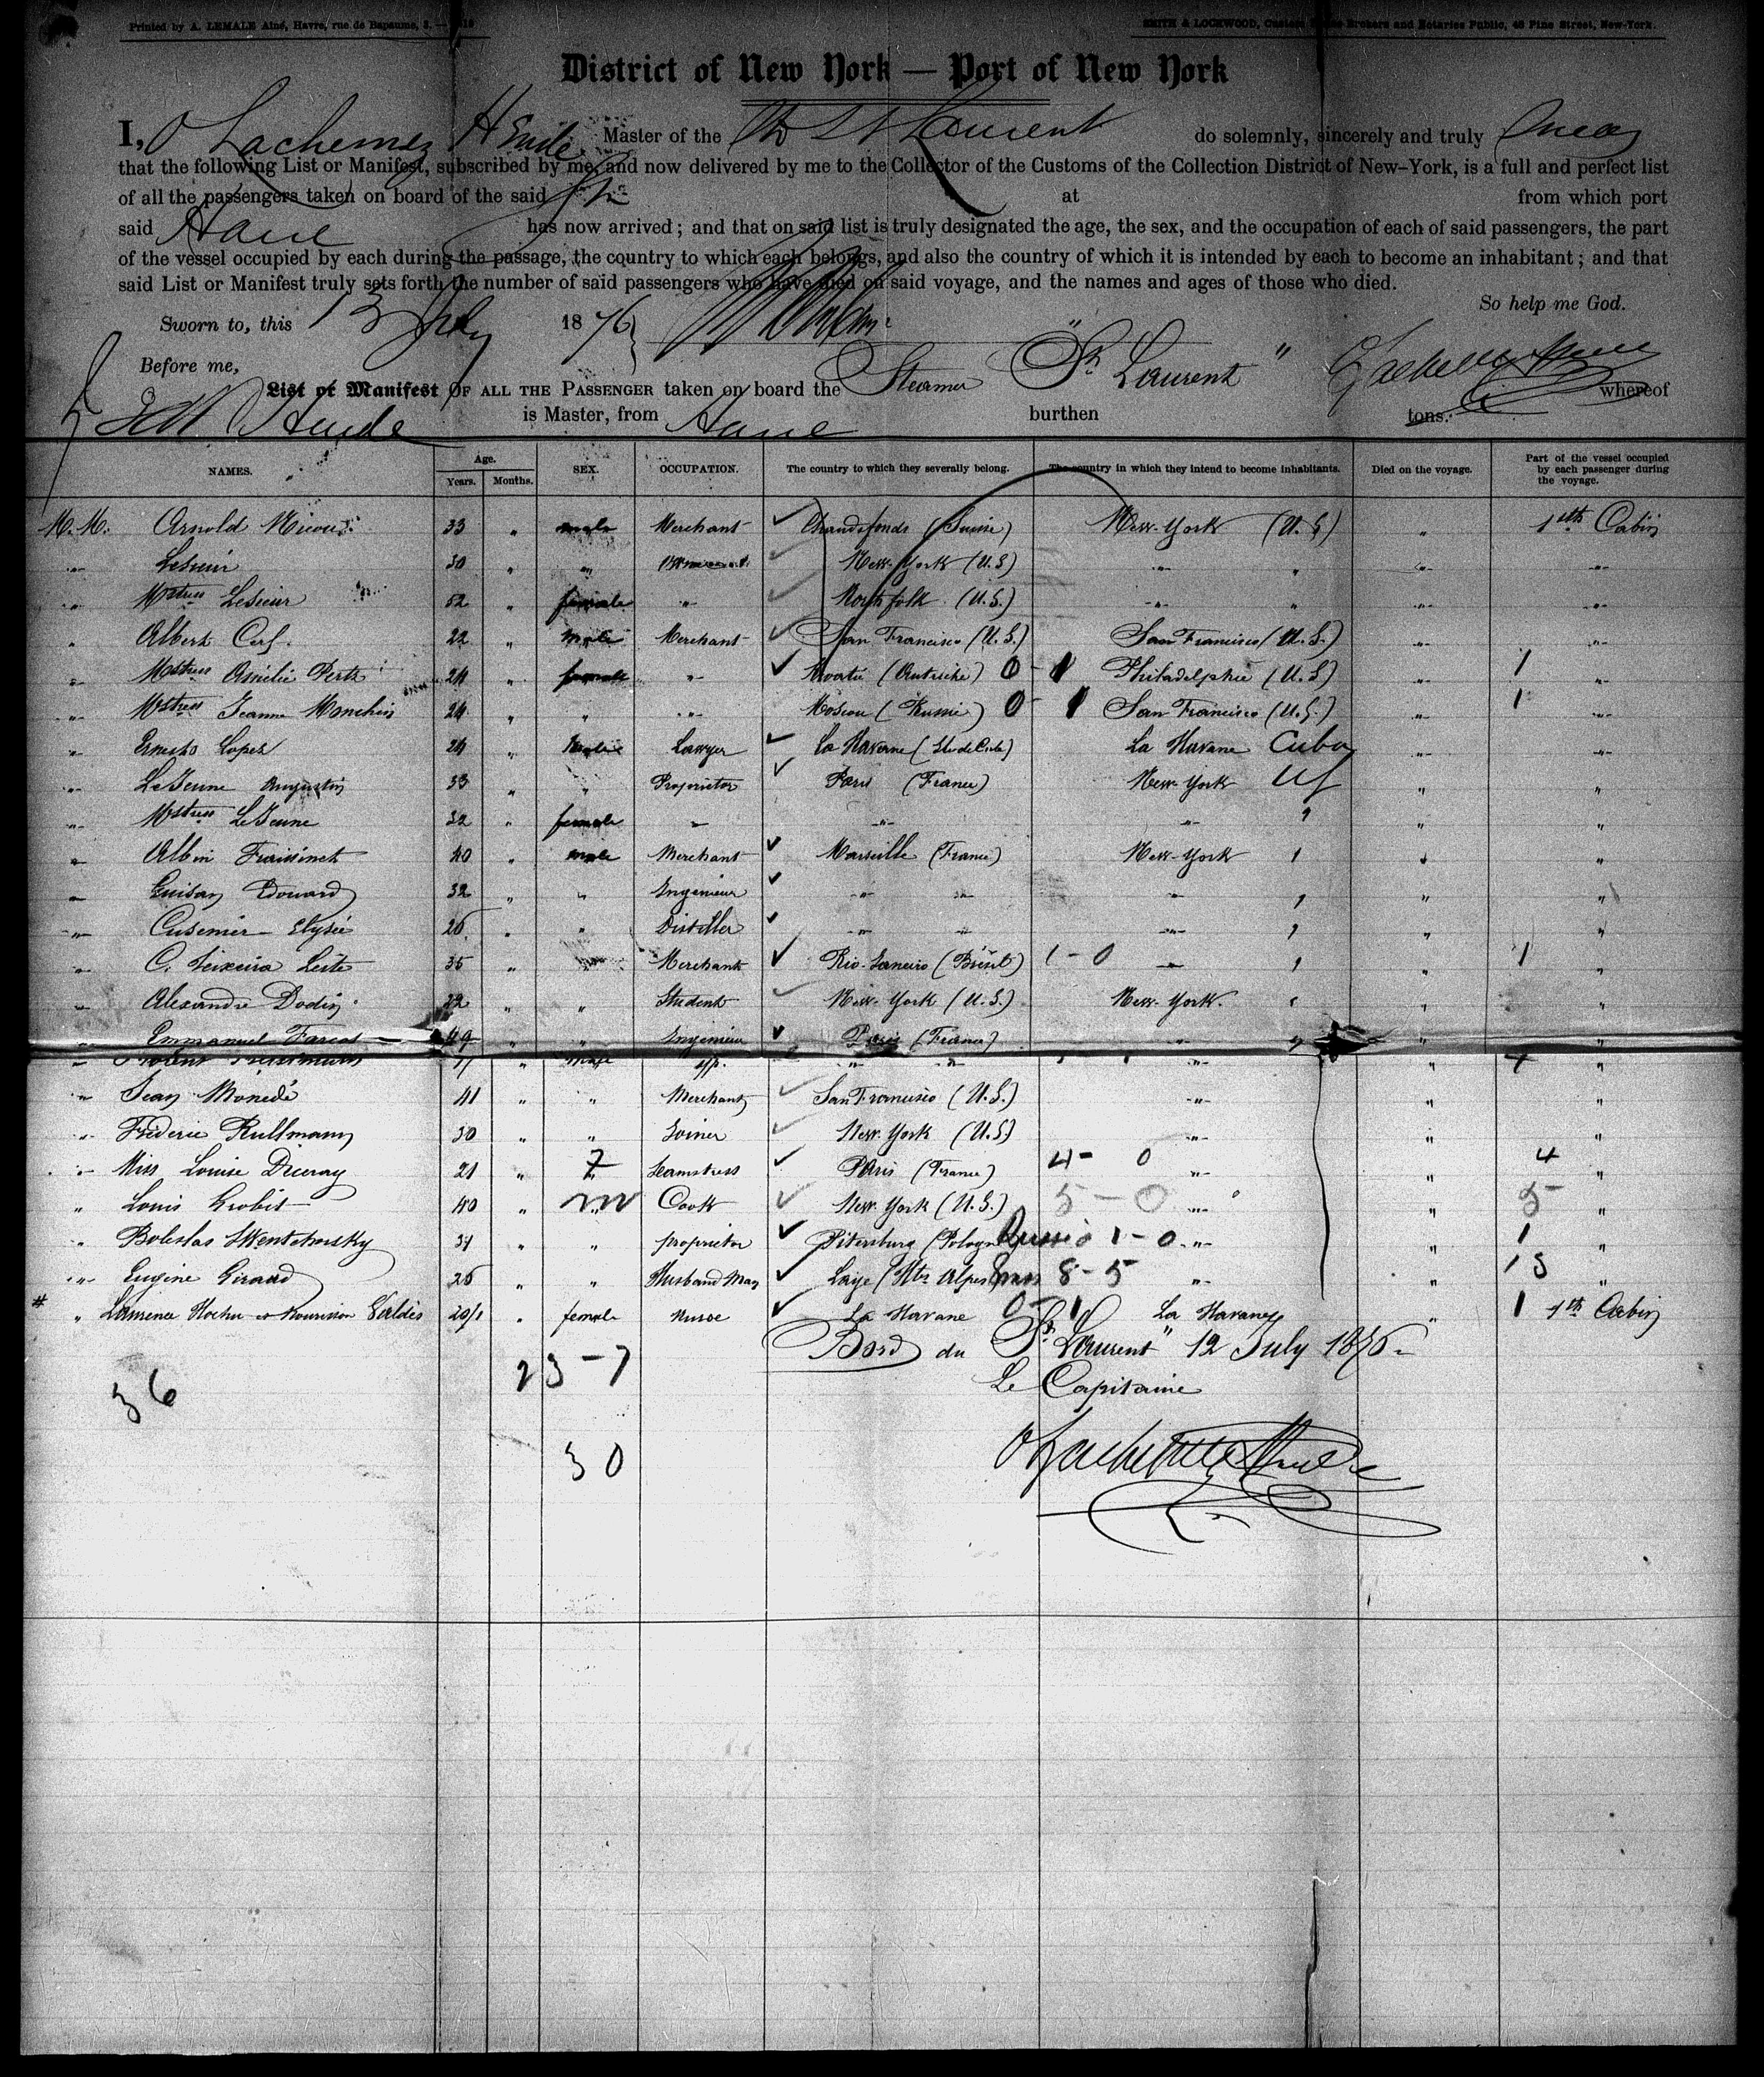 Printed by A. LEMALE Aîné, Havre, rue de Bapaume, 3. —
SMITH & LOCKWOOD, Custom House Brokers and Notaries Public, 46 Pine Street, New-York.
District of New York — Port of New York
I, Master of the St Laurent do solemnly, sincerely and truly Swear
that the following List or Manifest, subscribed by me, and now delivered by me to the Collector of the Customs of the Collection District of New-York, is a full and perfect list
of all the passengers taken on board of the said at from which port
said Havre has now arrived; and that on said list is truly designated the age, the sex, and the occupation of each of said passengers, the part
of the vessel occupied by each during the passage, the country to which each belongs, and also the country of which it is intended by each to become an inhabitant; and that
said List or Manifest truly sets forth the number of said passengers who have died on said voyage, and the names and ages of those who died.
So help me God.
Sworn to, this 13 July 1876
Before me,
List or Manifest OF ALL THE PASSENGER taken on board the Steamer "St. Laurent" whereof
is Master, from Havre burthen tons.
NAMES. Age. Years. Months. SEX. OCCUPATION. The country to which they severally belong. The country in which they intend to become inhabitants. Died on the voyage. Part of the vessel occupied by each passenger during the voyage.
M.M. Arnold 33 " male Merchant (Suisse) New-York (U.S) " 1th Cabin
" 30 " " New-York (U.S) " " " "
" Mstress LeSieur 52 " female " North folk (U.S.) " " " "
" Albert Cerf 22 " male Merchant San Francisco (U.S.) San Francisco (U.S.) " "
" Mstress Amélie 24 " female " (Autriche) 0 - 1 Philadelphie (U.S) " 1 "
" Mstress Jeanne 24 " " " Moscou (Russie) 0 - 1 San Francisco (U.S.) " 1 "
" Ernesto Lopez 24 " Male Lawyer La Havane (Ile de Cuba) La Havane Cuba " "
" LeJeune Augustin 33 " " Proprietor Paris (France) New-York US " "
" Mstress LeJeune 32 " female " " " " " "
" Albin Fraissinet 40 " male Merchant Marseille (France) New-York " " "
" Guisan Edouard 32 " " Ingenieur " " " " " "
" Cusenier Elysée 25 " " Distiller " " " " " "
" C. Teixeira Leite 35 " Merchant Rio-Janeiro (Brésil) 1 - 0 " " " 1 "
" Alexandre Dodin 22 " " Student New-York (U.S.) New-York. " " "
" Emmanuel Farcot 49 " " Ingenieur Paris (France) " " " "
" male " " " " 4 "
" Jean Monedé 41 " " Merchant San Francisco (U.S.) " " "
" Fréderic Rullmann 30 " " Joiner New-York (U.S) " " "
" Miss Louise 21 " F Seamstress Paris (France) 4 - 0 " " 4 "
" Louis Grobit 40 " m Cook New York (U.S.) 5 - 0 " " 5 "
" Boleslas 37 " " proprietor Petersburg (Pologne) Russia 1 - 0 " " 1 "
" Eugène Giraud 25 " " Husbandman Laye (Htes Alpes) 8 - 5 " " 13 "
# " Laurence 20/1 " female Nurse La Havane 0 - 1 La Havane " 1 1th Cabin
Bord du "St. Laurent" 12 July 1876
23 - 7
Le Capitaine
36
30